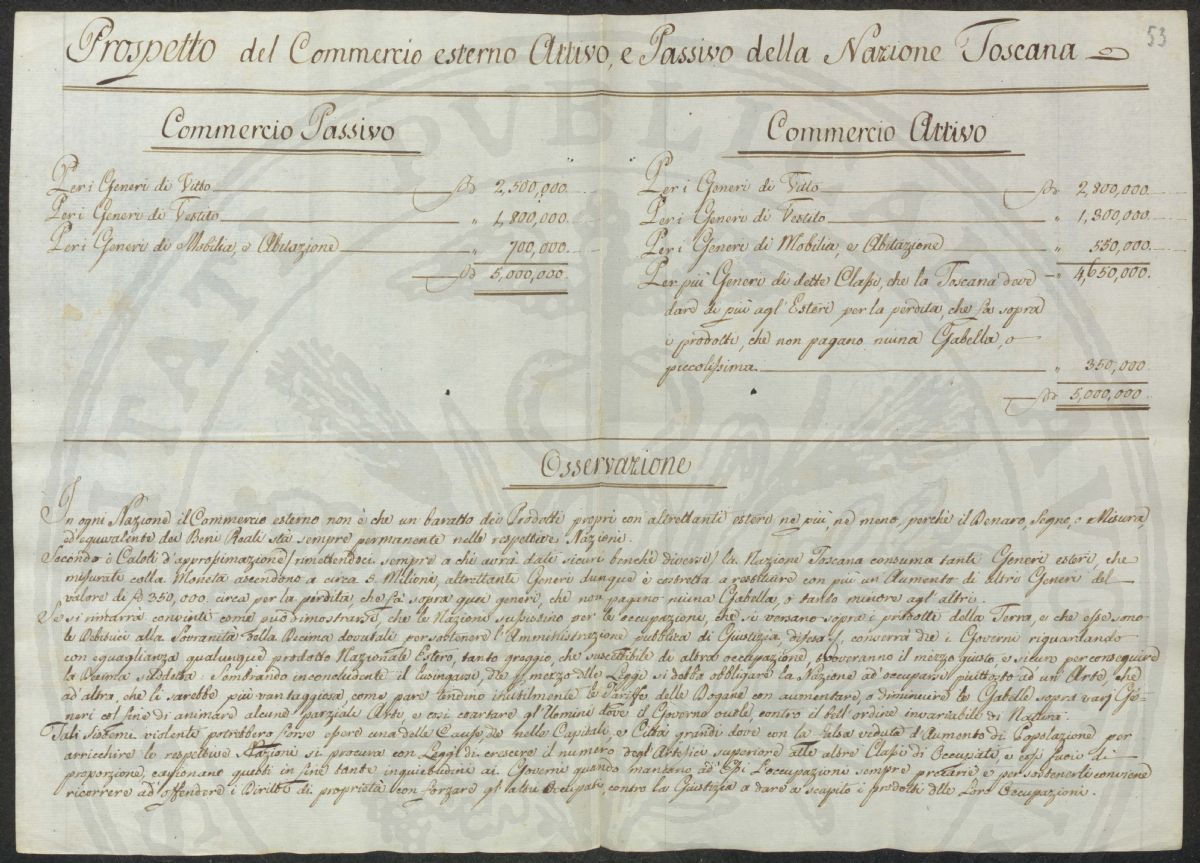 53
Prospetto del Commercio esterno Attivo, e Passivo della Nazione Toscana
Commercio Passivo
Per i Generi di Vitto 2,500,000.
Per i Generi di Vestito " 1,800,000.
Per i Generi di Mobilia, e Abitazione " 700,000.
5,000,000.
Commercio Attivo
Per i Generi di Vitto 2,800,000.
Per i Generi di Vestito " 1,300,000.
Per i Generi di Mobilia, e Abitazione " 550,000.
Per più Generi di dette Classi, che la Toscana deve " 4,650,000.
dare di più agl'Esteri per la perdita, che fà sopra
i prodotti, che non pagano niuna Gabella, o
piccolissima. " 350,000
5,000,000.
Osservazione
In ogni Nazione il Commercio esterno non è che un baratto dei Prodotti propri con altrettanti esteri ne più, ne meno, perchè il Denaro Segno, o Misura
d'equivalente dei Beni Reali stà sempre permanente nelle respettive Nazioni.
Secondo i Caloli d'approsimazione/rimettendoci sempre a chi avrà dati sicuri benchè diversi/ la Nazione Toscana consuma tanti Generi esteri, che
misurati colla Moneta ascendono a circa 5 Milioni, altrettanti Generi dunque è costretta a restituire con più un Aumento di altri Generi del
valore di 350,000. circa per la perdita, che fà sopra quei generi, che non pagano niuna Gabella, o tanto minore agl'altri.
Se si resterà convinti come può dimostrarsi, che le Nazioni sussistino per le occupazioni, che si versano sopra i prodotti della Terra, e che esse sono
le Debitrici alla Sovranità della Decima dovutale per sostenere l'Amministrazione pubblica di Giustizia difesa converrà che i Governi riguardando
con eguaglianza qualunque prodotto Nazionale Estero, tanto greggio, che suscettibile di altra occupazione troveranno il mezzo giusto, e sicuro per conseguire
la Decima suddetta. Sembrando inconcludente il lusingarsi, che p mezzo delle Leggi si debba obbligare la Nazione ad occuparsi piuttosto ad un Arte, che
ad altra, che li sarebbe più vantaggiosa, come pare tendino inutilmente le Tariffe delle Dogane con aumentare, o diminuire le Gabelle sopra varj Ge-
neri col fine di animare alcune parziali Arti, e così coartare gl'Uomini dove il Governo vuole, contro il bell'ordine invariabile di Natura.
Tali Sistemi violenti potrebbero forse essere una delle Cause, che nelle Capitali, e Città grandi dove con la falsa veduta d'Aumento di Popolazione per
arricchire le respettive Nazioni si procura con Leggi di crescere il numero degl'Artefici superiore alle altre Classi di Occupati, e essi fuori di
proporzione, cagionano questi in fine tante inquietudini ai Governi quando mancano ad Essi l'occupazioni sempre precarie e per sostenerli conviene
ricorrere ad offendere i Diritti di proprietà con forzare gl'altri Occupati, contro la Giustizia a dare a scapito i prodotti delle Loro Occupazioni.